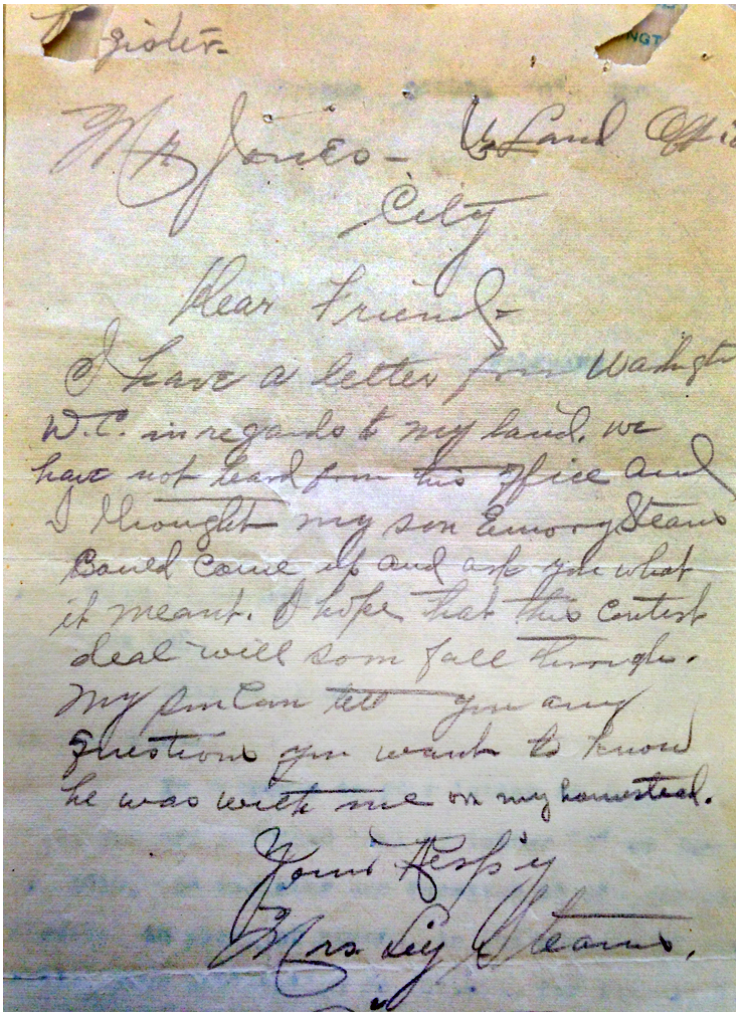 gister-
NGT
Mr Jones - US Land Offi
City
Dear Friend-
I have a letter from Washingt
D.C. in regards to my land. we
have not heard from this office and
I thought my son Emory Stearns
Could Come up and ask you what
it meant. I hope that this Contest
deal will soon fall through.
My son Can tell you any
questions you want to know
he was with me on my homestead.
Yours Resp'y
Mrs. Stearns.